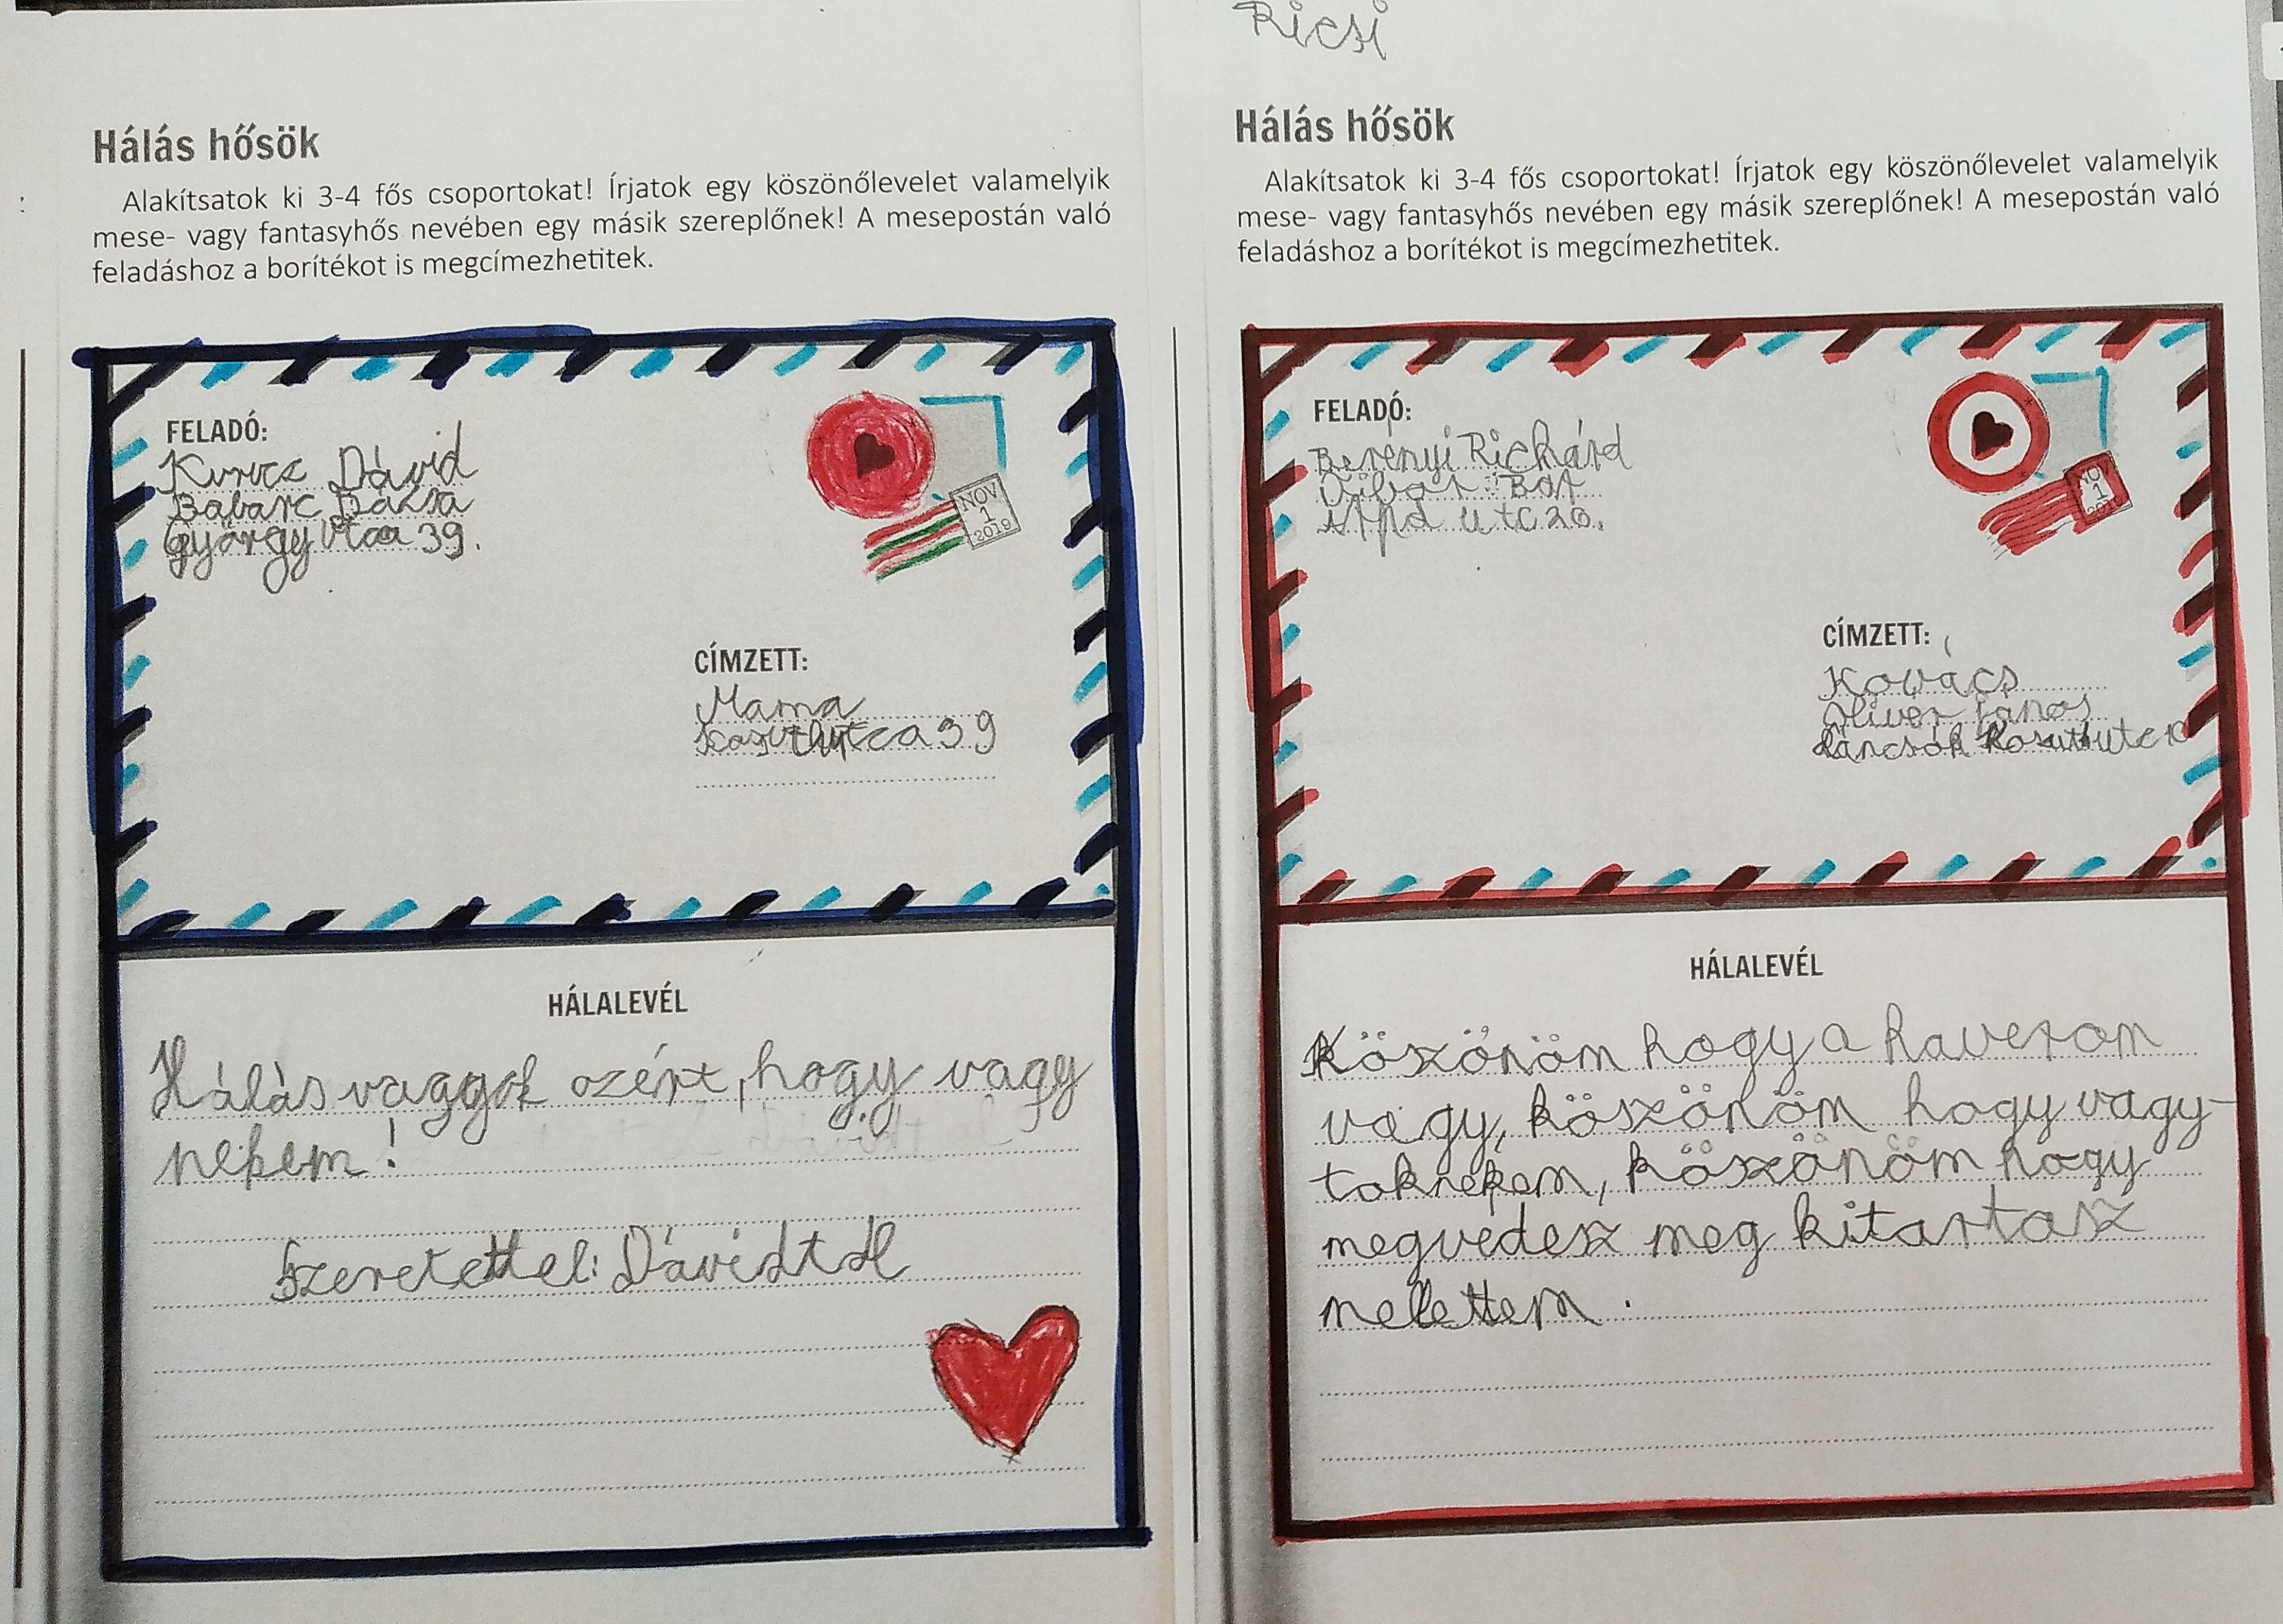 Hálás hősök
Alakítsatok ki 3-4 fős csoportokat! Írjatok egy köszönőlevelet valamelyik
mese- vagy fantasyhős nevében egy másik szereplőnek! A mesepostán való
feladáshoz a borítékot is megcímezhetitek.
FELADÓ:
Kurcz Dávid
Babarc Dózsa
György utca 39.
NOV
1
2019
CÍMZETT:
Mama
utca 39
HÁLALEVÉL
Hálás vaggok ozért, hogy vagy
nekem!
Szeretettel: Dávidtól
Ricsi
Hálás hősök
Alakítsatok ki 3-4 fős csoportokat! Írjatok egy köszönőlevelet valamelyik
mese- vagy fantasyhős nevében egy másik szereplőnek! A mesepostán való
feladáshoz a borítékot is megcímezhetitek.
FELADÓ:
Berényi Richárd
utc 20.
NOV
1
CÍMZETT:
Kovács
Oliver János
Láncsók
HÁLALEVÉL
Köszönöm hogy a haverom
vagy, köszönöm hogy vagy-
toknekem, köszönöm hogy
megvédesz meg kitartasz
melettem.